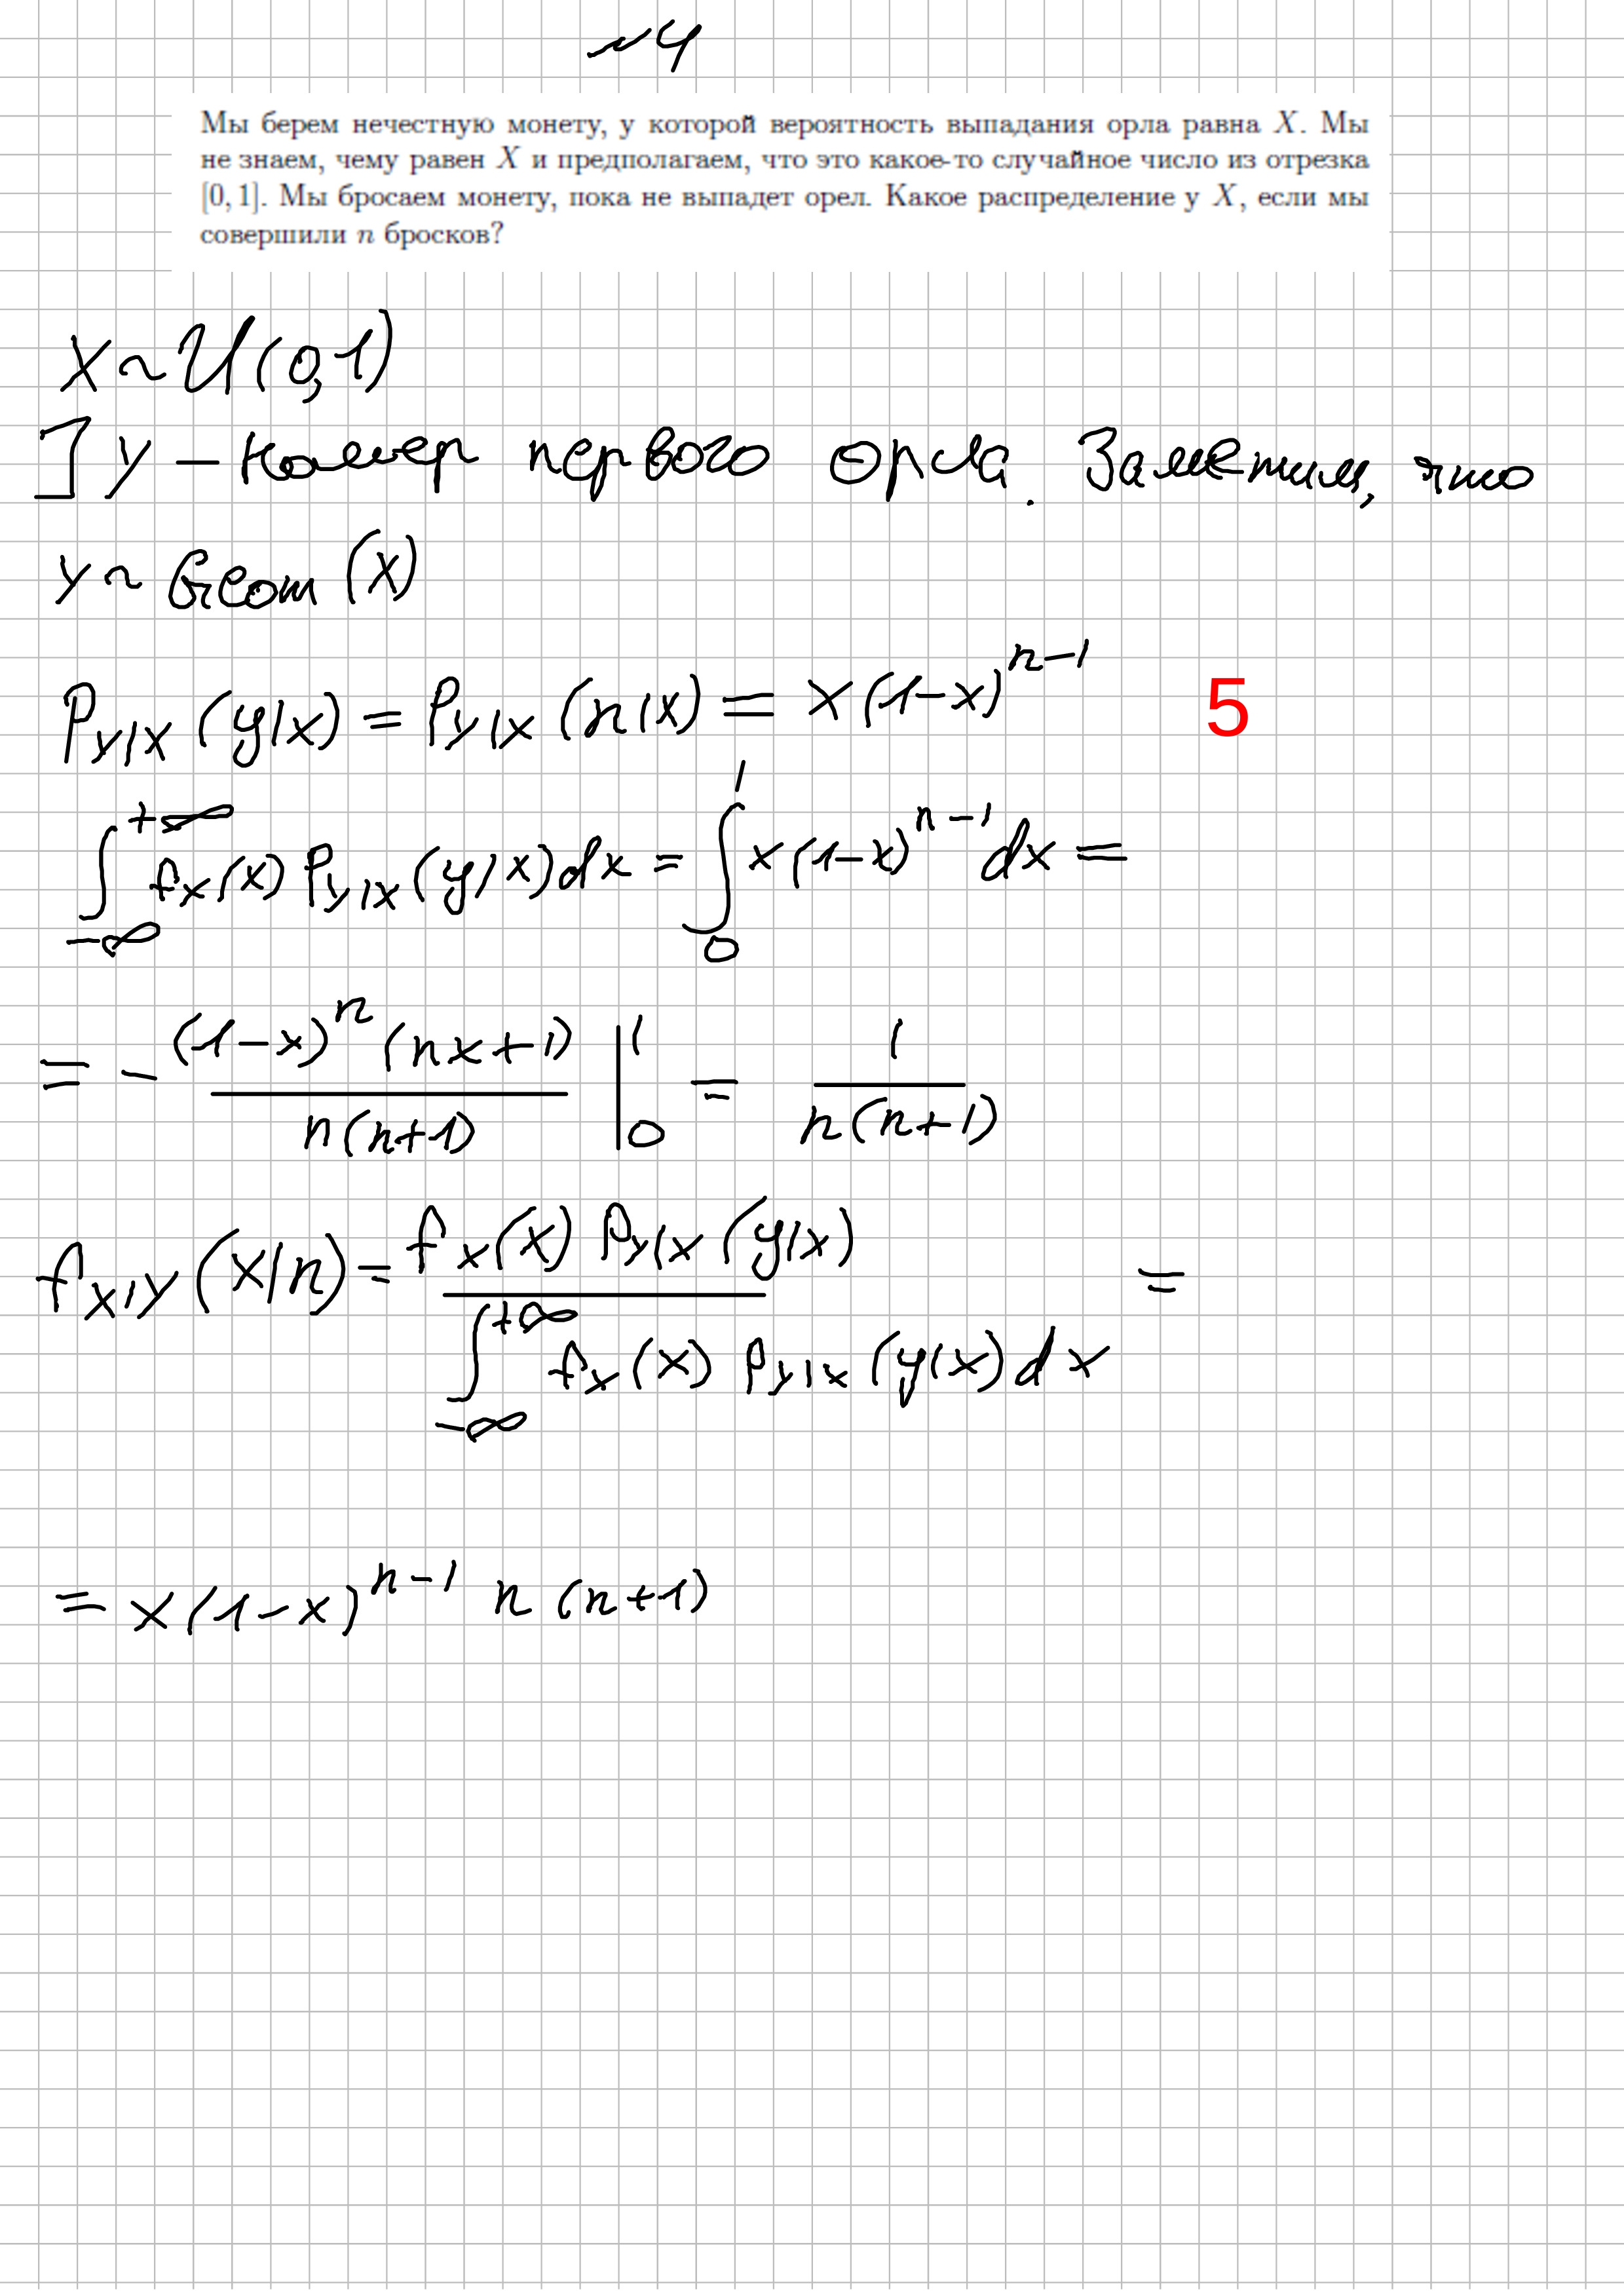 №4
Мы берем нечестную монету, у которой вероятность выпадания орла равна X. Мы
не знаем, чему равен X и предполагаем, что это какое-то случайное число из отрезка
[0, 1]. Мы бросаем монету, пока не выпадет орел. Какое распределение у X, если мы
совершили n бросков?
X ~ U(0,1)
] Y – номер первого орла. Заметим, что
Y ~ Geom (X)
P_{Y|X} (y|x) = P_{Y|X} (n|x) = x(1-x)^{n-1}
5
∫_{-∞}^{+∞} f_X(x) P_{Y|X}(y|x)dx = ∫_0^1 x(1-x)^{n-1}dx =
= - \frac{(1-x)^n (nx+1)}{n(n+1)} |_0^1 = \frac{1}{n(n+1)}
f_{X|Y} (x|n) = \frac{f_X(x) P_{Y|X}(y|x)}{∫_{-∞}^{+∞} f_X(x) P_{Y|X}(y|x)dx} =
= x(1-x)^{n-1} n(n+1)